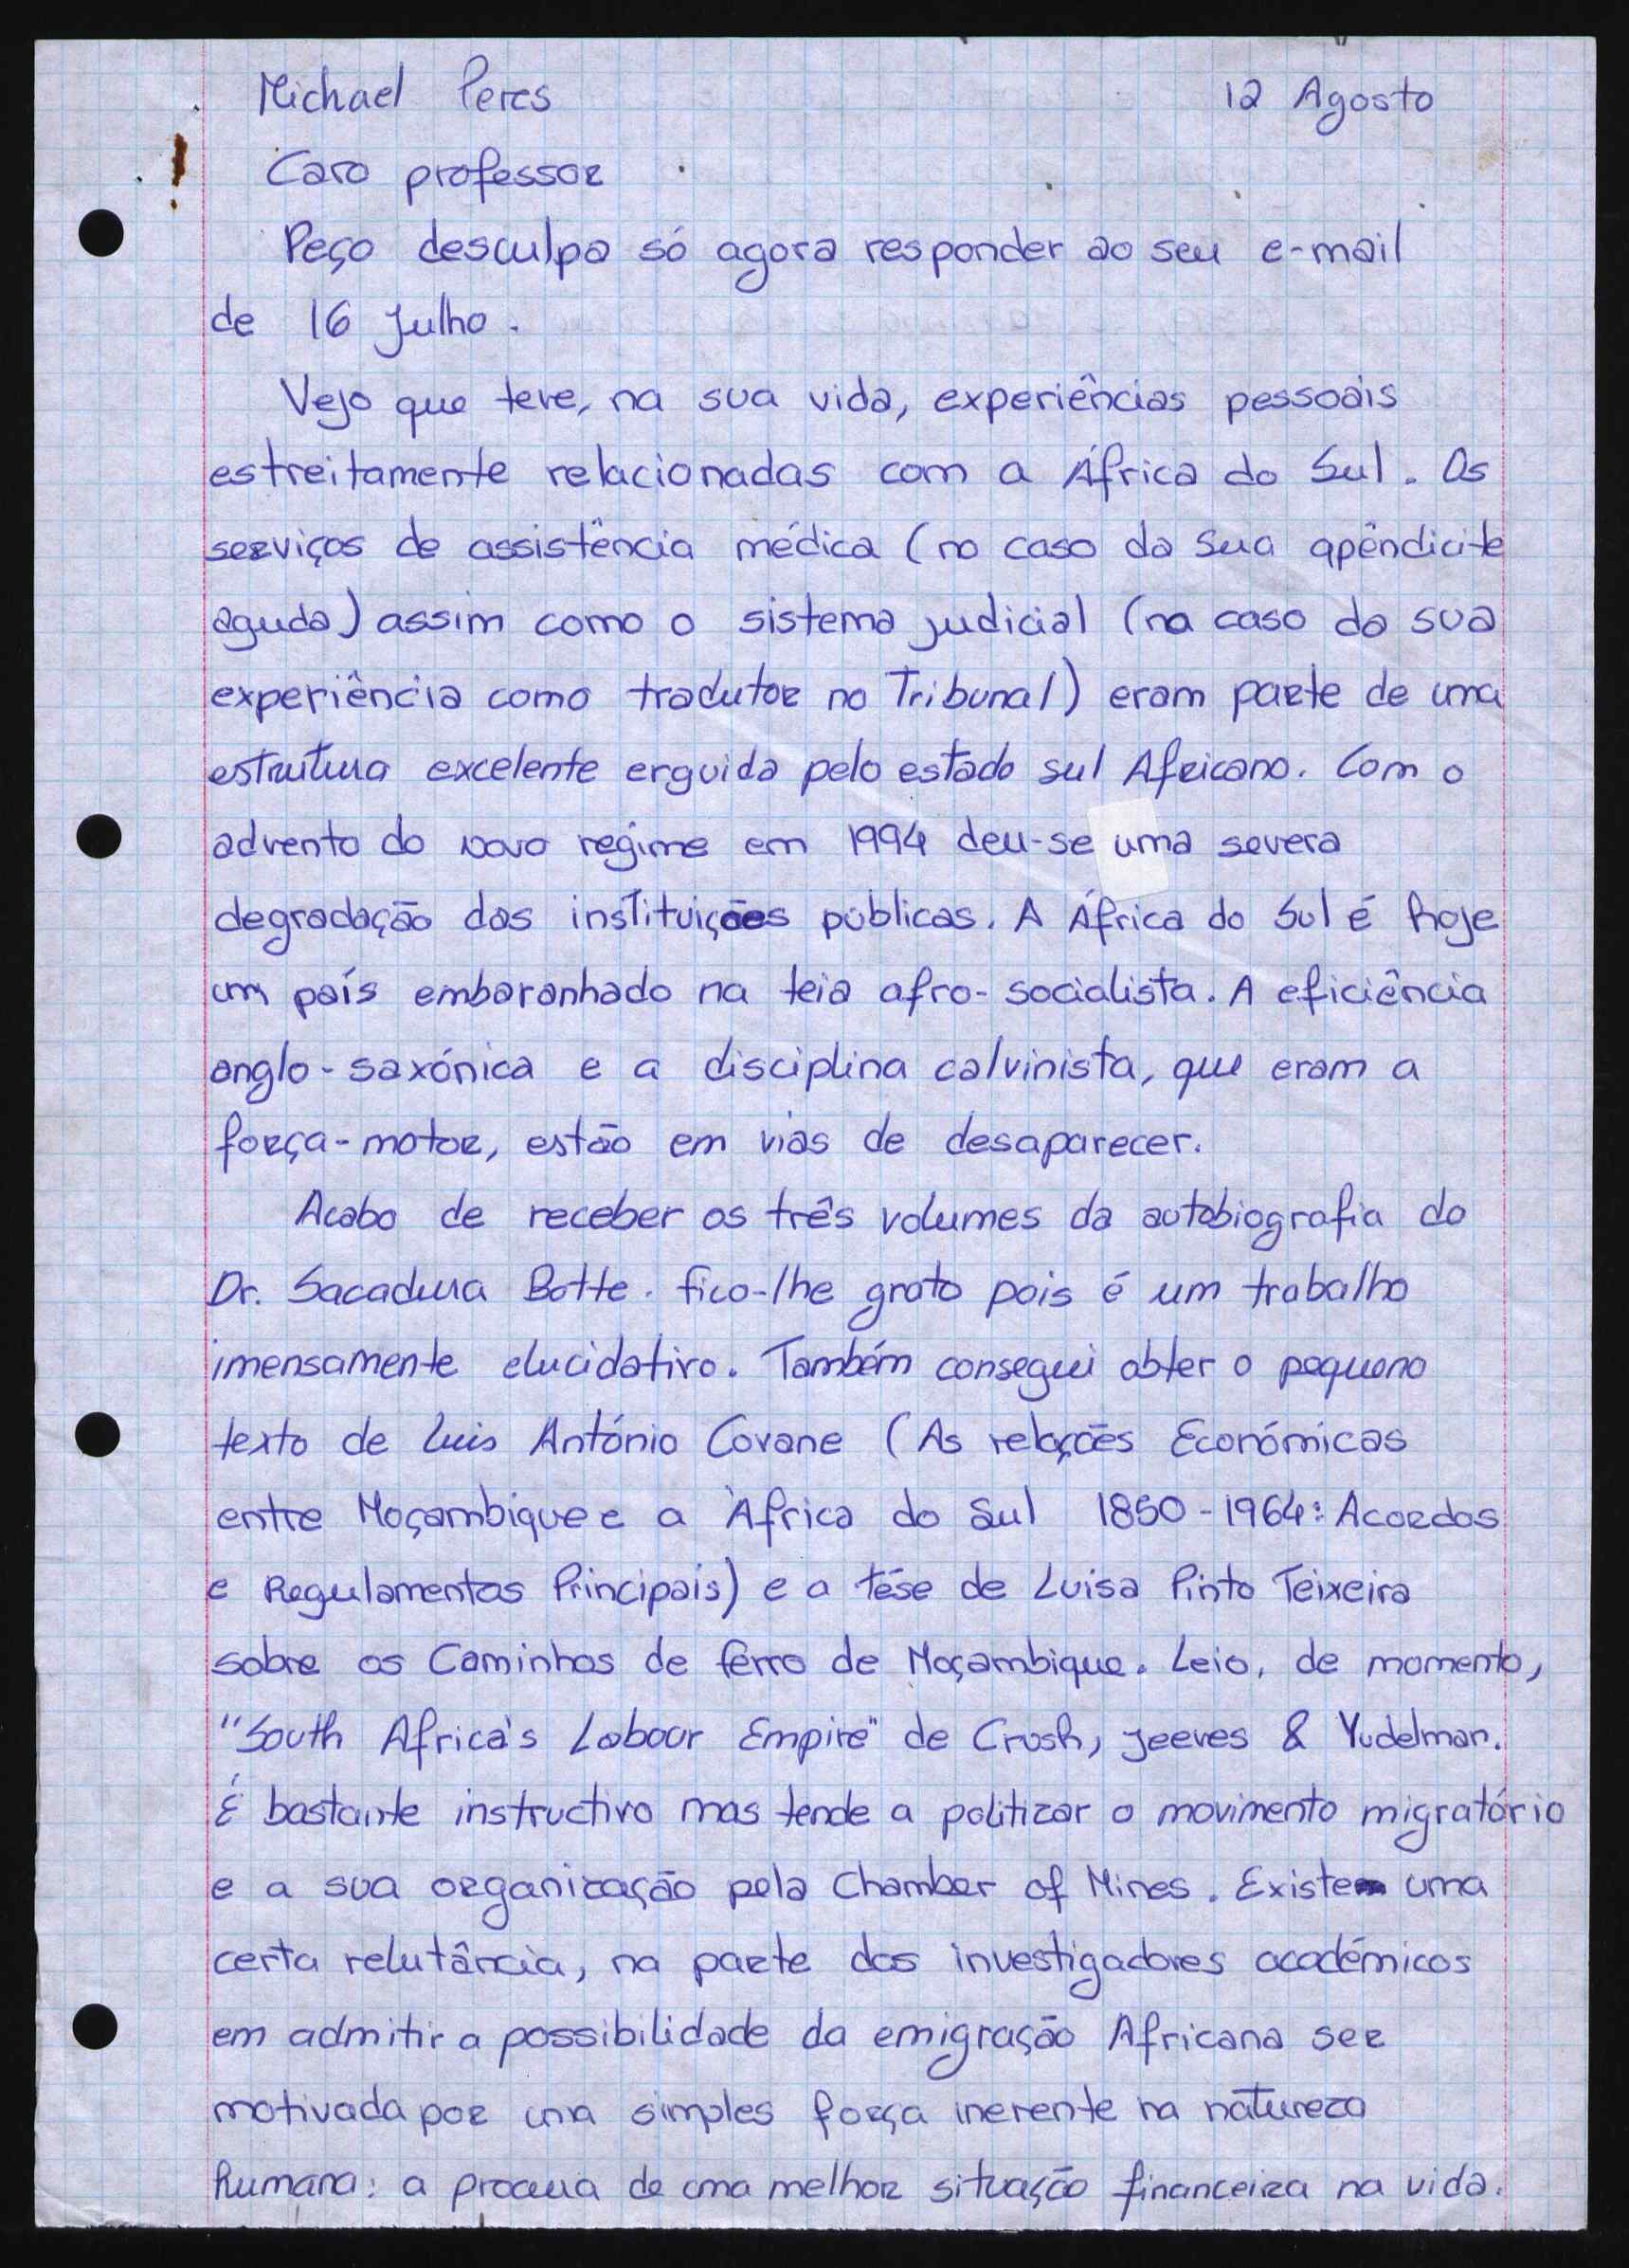 Michael Peres 12 Agosto
Caro professor
Peço desculpa só agora responder ao seu e-mail
de 16 Julho.
Vejo que teve, na sua vida, experiências pessoais
estreitamente relacionadas com a África do Sul. Os
serviços de assistência médica (no caso da sua apêndicite
aguda) assim como o sistema judicial (na caso da sua
experiência como tradutor no Tribunal) eram parte de uma
estrutura excelente erguida pelo estado sul Africano. Com o
advento do novo regime em 1994 deu-se uma severa
degradação das instituições públicas. A África do Sul é hoje
um país embaranhado na teia afro-socialista. A eficiência
anglo-saxónica e a disciplina calvinista, que eram a
força-motor, estão em vias de desaparecer.
Acabo de receber os três volumes da autobiografia do
Dr. Sacadura Botte. fico-lhe grato pois é um trabalho
imensamente elucidativo. Também consegui obter o pequeno
texto de Luis António Covane (As relações Económicas
entre Moçambique e a África do Sul 1850-1964: Acordos
e Regulamentos Principais) e a tése de Luisa Pinto Teixeira
sobre os Caminhos de ferro de Moçambique. Leio, de momento,
"South Africa's Labour Empire" de Crush, Jeeves & Yudelman.
É bastante instructivo mas tende a politizar o movimento migratório
e a sua organização pela Chamber of Mines. Existe uma
certa relutância, na parte dos investigadores académicos
em admitir a possibilidade da emigração Africana ser
motivada por uma simples força inerente na natureza
humana: a procura de uma melhor situação financeira na vida.